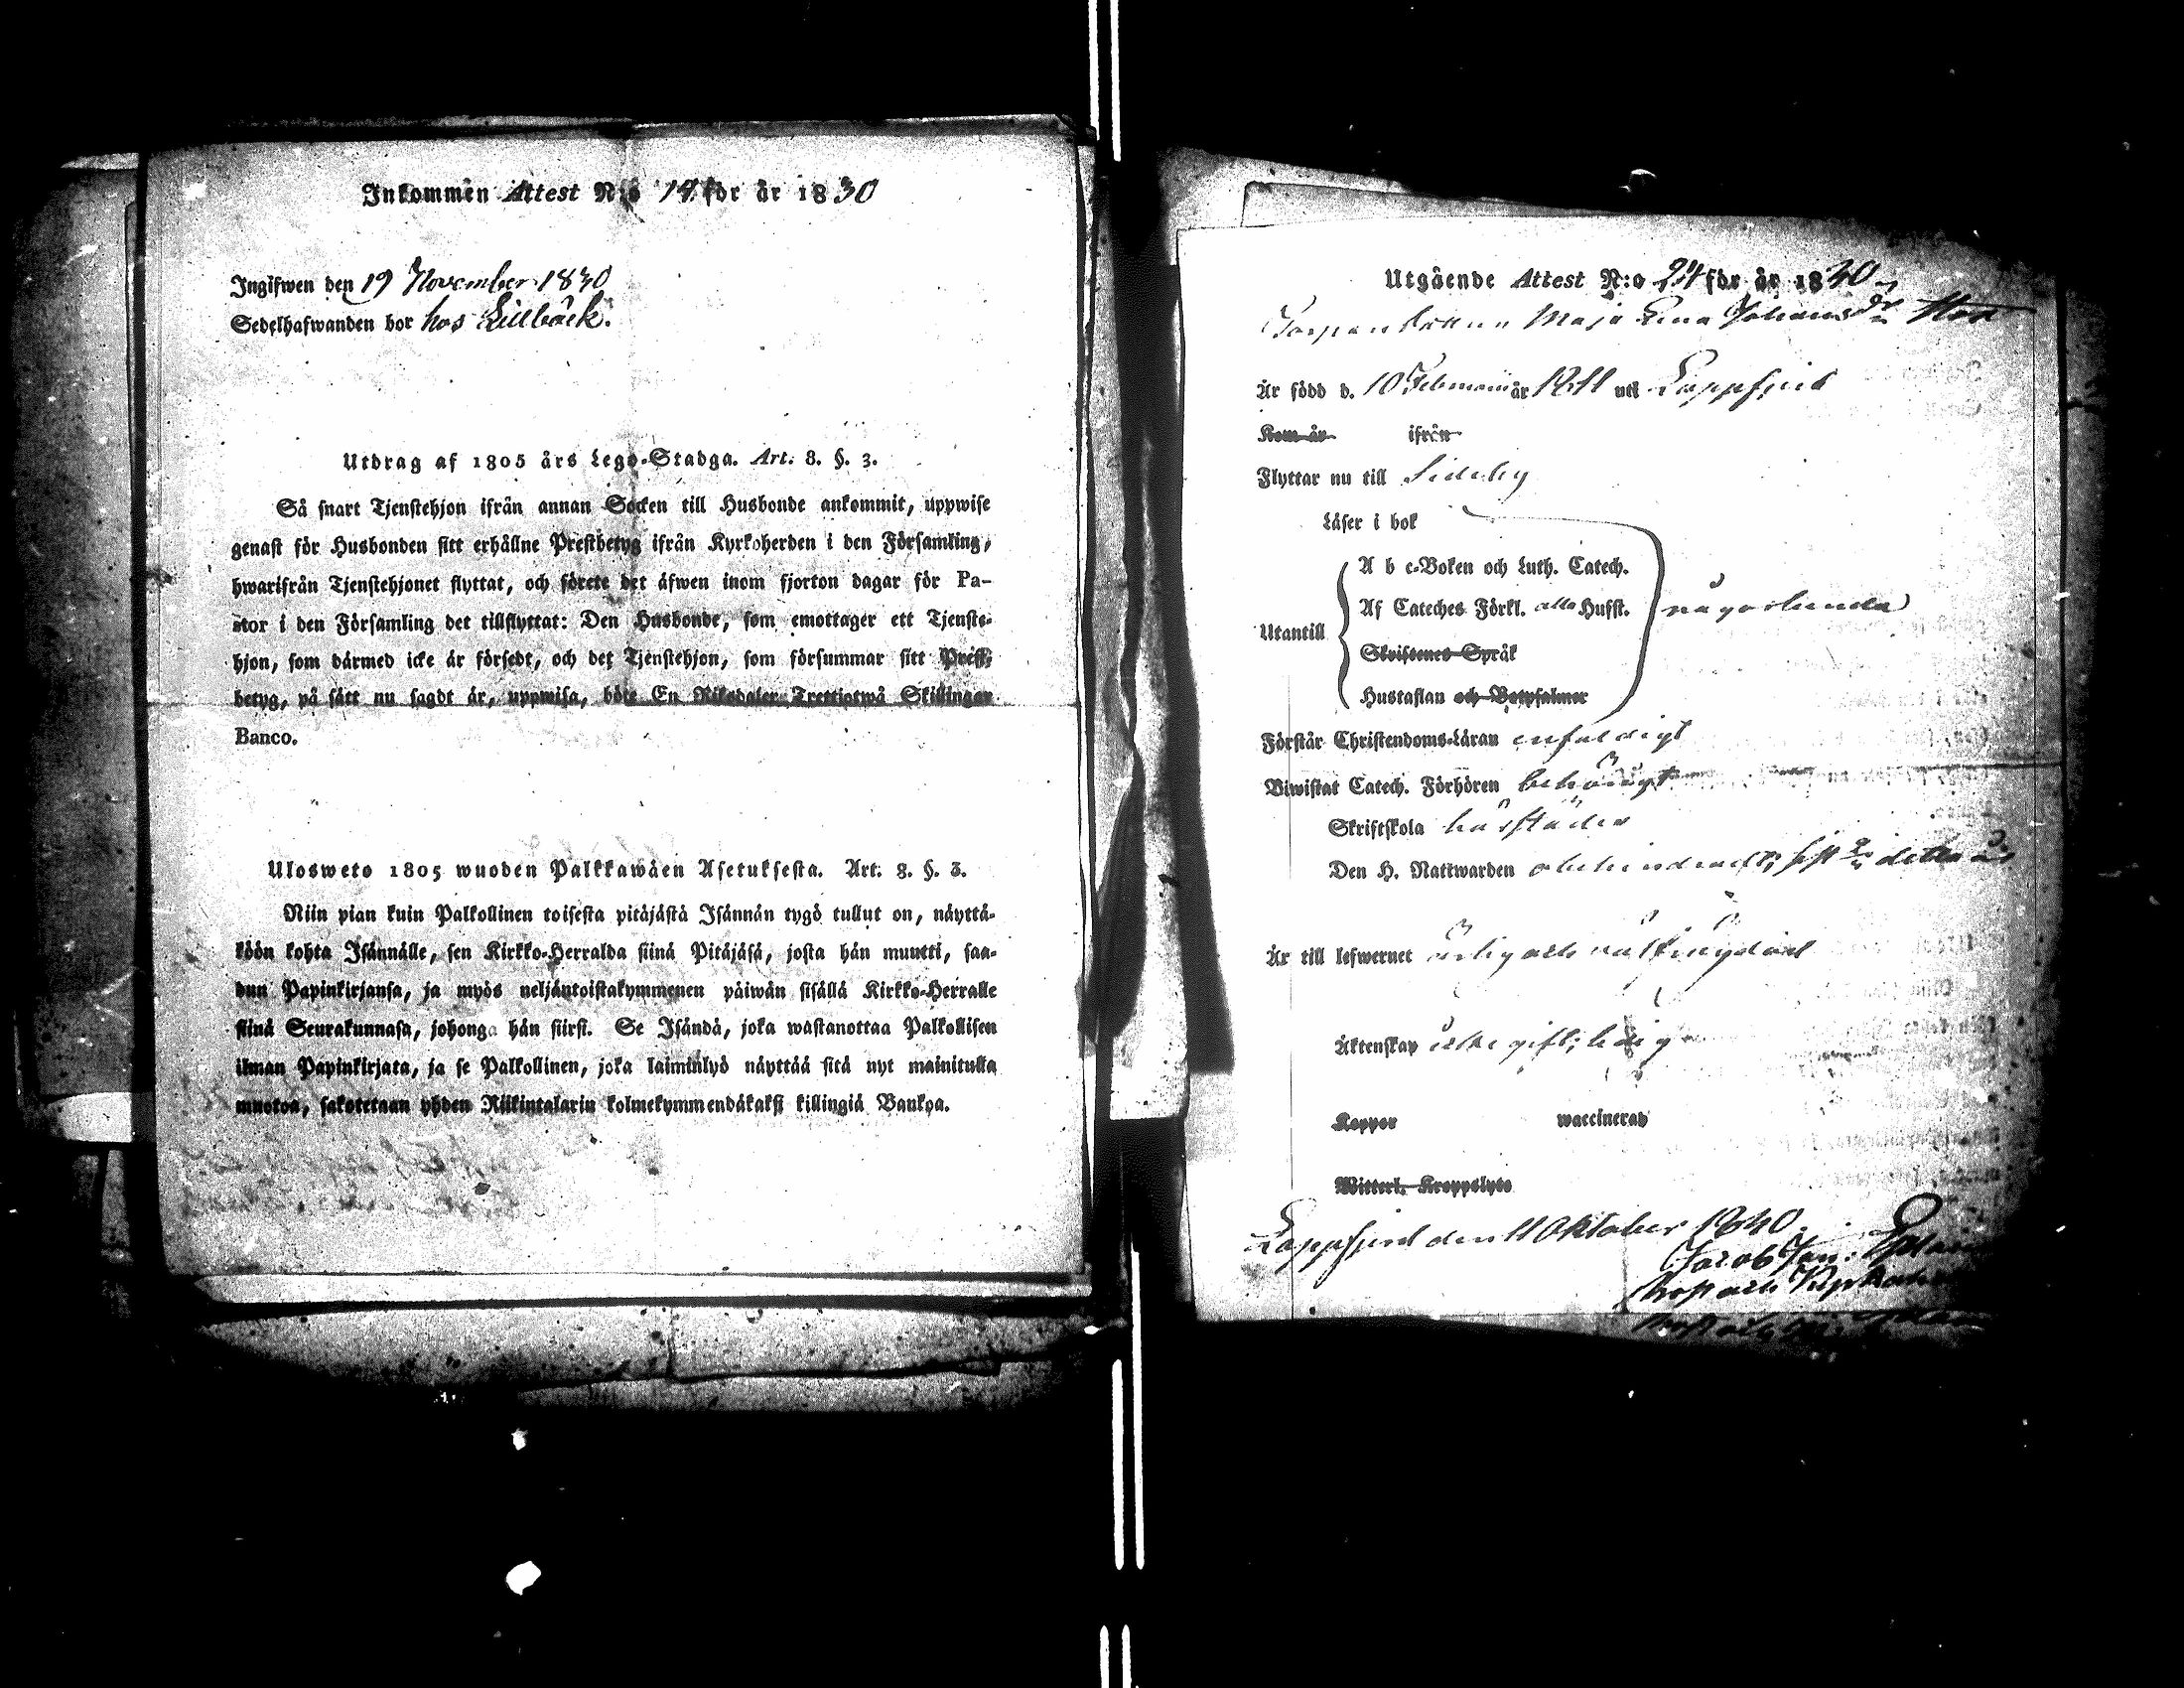 Inkommen Attest N:o 14 för år 1830
Ingifwen den 19 November 1830
Sedelhafwanden bor hos Lillbäck.
Utdrag af 1805 års Lego-Stadga. Art. 8. §. 3.
Så snart Tjenstehjon ifrån annan Socken till Husbonde ankommit, uppwise
genast för Husbonden sitt erhållne Prestbetyg ifrån Kyrkoherden i den Församling,
hwarifrån Tjenstehjonet flyttat, och förete det äfwen inom fjorton dagar för Pa-
stor i den Församling det tillflyttat: Den Husbonde, som emottager ett Tjenste-
hjon, som därmed icke är försedt, och det Tjenstehjon, som försummar sitt Prest-
betyg, på sätt nu sagdt är, uppwisa, böte En Riksdaler Trettiotwå Skillingar
Banco.
Ulosweto 1805 wuoden Palkkawäen Asetuksesta. Art. 8. §. 3.
Niin pian kuin Palkollinen toisesta pitäjästä Isännän tygö tullut on, näyttä-
köön kohta Isännälle, sen Kirkko-Herralda siinä Pitäjäsä, josta hän muutti, saa-
dun Papinkirjansa, ja myös neljäntoistakymmenen päiwän sisällä Kirkko-Herralle
siinä Seurakunnasa, johonga hän siirst. Se Isändä, joka wastanottaa Palkollisen
ilman Papinkirjata, ja se Palkollinen, joka laiminlyö näyttää sitä nyt mainitulla
muotoa, sakotetaan yhden Riikintalarin kolmekymmendäkaksi killingiä Bankoa.
Utgående Attest N:o 24 för år 1830
Maja Lena Johansdr
Är född d. 10 Februarii år 1811 uti Lappfjerd
Kom år ifrån
Flyttar nu till Sideby
Läser i bok
A b c-Boken och Luth. Catech.
Af Cateches Förkl. alla Hufst. någorlunda
Utantill
Skriftenes Språk
Hustaflan och Botpsalmer
Förstår Christendoms-Läran enfaldigt
Biwistat Catech. Förhören behörigt
Skriftskola härstädes
Den H. Nattwarden obehindrad, sist detta år
Är till lefwernet ärlig och
Äktenskap icke gift; ledig
Koppor waccinerad
Witterl. Kroppslyte
Lappfjerd den 11 Oktober 1830.
Jacob